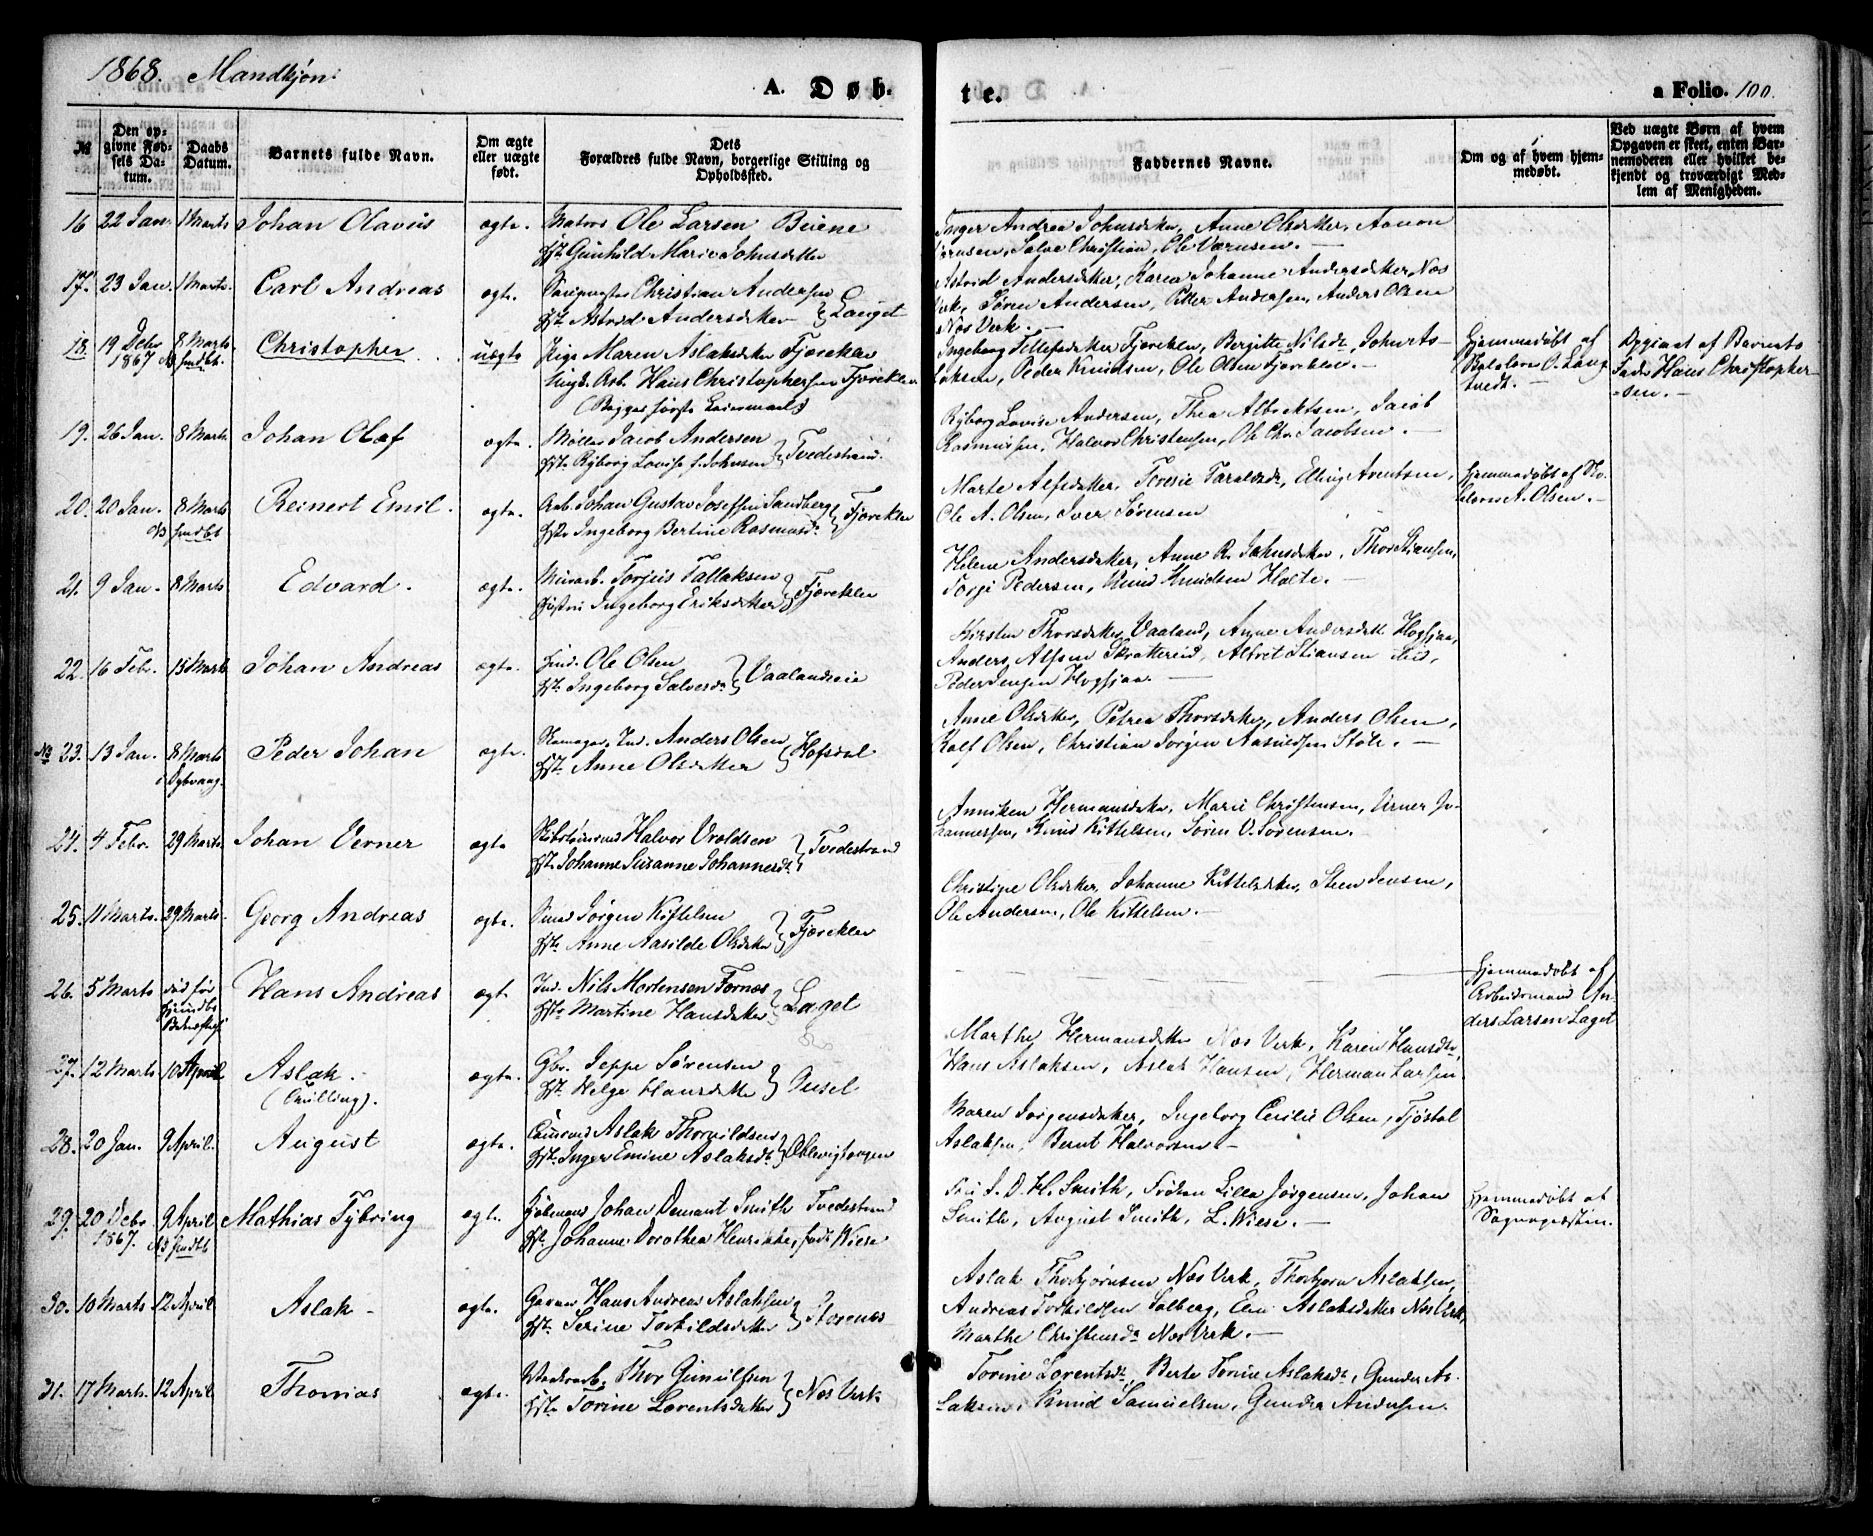 1868. Mandkjøn.
A. Døb-
te.
a Folio. 100.
№
Den op-
givne Fød-
sels Da-
tum.
Daabs
Datum.
Barnets fulde Navn.
Om ægte
eller uægte
født.
Dets
Forældres fulde Navn, borgerlige Stilling og
Opholdssted.
Faddernes Navne.
Om og af hvem hjem-
medøbt.
Ved uægte Børn af hvem
Opgaven er skeet, enten Bar-
nemoderen eller hvilket be-
kjendt og troværdigt Med-
lem af Menigheden.
16 22 Jan. 1 Marts Johan Olavus ægte. Matros Ole Larsen Buene
Gunhild Marie Johnsdatter
Inger Andrea Johnsdatter, Anne Olsdatter, Aanon
Salve Christian, Ole Værnsen. —
17. 23 Jan. 1 Marts. Carl Andreas ægte. Christian Andersen
Hst. Astrid Andersdatter } Lauget
Astrid Andersdatter, Karen Johanne Andersdatter, Næs
Verk, Søren Andersen, Petter Andersen, Anders Olsen
Næs Verk. —
18. 19 Debr 1867 8 Marts. Christopher uægte Pige Maren Aslaksdatter Fjæreklev
Ungk. Arb. Hans Christophersen Fjæreklev
(Begges første Leiermaal)
Ingeborg Tellefsdatter Fjæreklev, Bergitte Nilsdt, John As-
laksen, Peder Knudsen, Ole Olsen Fjæreklev. —
Hjemmedøbt af
Skolelærer O. Lang-
tvedt. —
Opgivet af Barnets
Fader Hans Christopher-
sen. —
19. 26 Jan. 8 Marts Johan Olaf ægte. Møller Jacob Andersen
Hst. Ryborg Lovise f. Johnsen } Tvedestrand.
Ryborg Lovise Andersen, Thea Albrektsen, Jacob
Rasmussen, Halvor Christensen, Ole Chr. Jacobsen. —
20. 20 Jan. 8 Marts Reinert Emil. ægte. Arb. Johan Gustav Josefsen Sandberg
Hst. Ingeborg Bertine Rasmusd. } Fjæreklev
Marte Alfsdatter, Teresie Taraldsdt, Elling Arentsen,
Ole A. Olsen, Iver Sørensen
Hjemmedøbt af Sko-
lelærer A. Olsen. —
21. 9 Jan. 8 Marts Edvard. ægte. Murarb. Torjus Tallaksen
Hustru Ingeborg Eriksdatter } Fjæreklev
Helene Andersdatter, Anne R. Johnsdatter, Thor Stiansen,
Torje Pedersen, Knud Knudsen Holte. —
22. 16 Febr. 15 Marts Johan Andreas ægte. Ind. Ole Olsen
Hst. Ingeborg Salvesd. } Vaalandseie
Kirsten Thorsdatter Vaaland, Anne Andersdatt. Hogsjaa,
Anders Alfsen Skottereid, Alfret Stiansen ibid,
Peder Jensen Hogsjaa. —
Na 23. 13 Jan. 8 Marts i Dybvaag. Peder Johan ægte. Ind. Anders Olsen
Hst. Anne Olsdatter } Hofsdal
Anne Olsdatter, Petrea Thorsdatter, Anders Olsen,
Rolf Olsen, Christian Jørgen Aasuldsen Støle. —
24. 4 Febr. 29 Marts Johan Verner ægte Skibstømrmd Halvor Vroldsen
Hst. Johanne Susanne Johannesdt. } Tvedestrand
Anniken Hermansdatter, Marie Christensen, Verner Jo-
hannessen, Knud Kittelsen, Søren V. Sørensen. —
25. 11 Marts. 29 Marts. Georg Andreas ægte. Smed Jørgen Kittelsen
Hst. Anne Aasilde Olsdatter } Fjæreklev
Christine Olsdatter, Johanne Kittelsdatter, Steen Jensen,
Ole Andersen, Ole Kittelsen. —
26. 5 Marts død før Hans Andreas ægt. Ind. Nils Mortensen Fornæs
Hst. Martine Hansdatter } Laget
Hjemmedøbt af
Arbeidsmand An-
ders Larsen Laget
27. 12 Marts 10 April Aslak. —
(Tvilling).
ægte. Gbr. Jeppe Sørensen
Hst. Helge Hansdatter } Ousel
Marthe Hermansdatter Næs Verk, Karen Hansdtr,
Hans Aslaksen, Aslak Hansen, Herman Larsen.
28. 20 Jan. 9 April. August ægte. Aslak Thorvildsen
Hst. Inger Emine Aslaksdt }
Maren Jørgensdatter, Ingeborg Cecilie Olsen, Tjøstol
Aslaksen, Bernt Halvorsen —
29. 20 Debr 1867. 9 April Mathias Tybring ægt. Kjøbmand Johan Demant Smith Tvedestrand
Hst. Johanne Dorothea Henrikke, født Wiese
Fru J. D. H. Smith, Frøken Lilla Jørgensen, Johan
Smith, August Smith, L. Wiese. —
Hjemmedøbt af
Sognepresten.
30. 10 Marts. 12 April Aslak — ægte. Hans Andreas Aslaksen
Hst. Serine Torkildsdatter } Storenæs
Aslak Thorbjørnsen Næs Verk, Thorbjørn Aslaksen,
Andreas Torkildsen Solberg, Eli Aslaksdatter Næs Verk,
Marthe Christensdr Næs Verk. —
31. 17 Marts. 12 April Thomas ægte. Verksarb. Thor Gunulfsen
Hst. Torine Lorentsdatter } Næs Verk
Torine Lorentsdt, Berte Torine Aslaksdt, Gunder As-
laksen, Knud Samuelsen, Gunder Andersen.